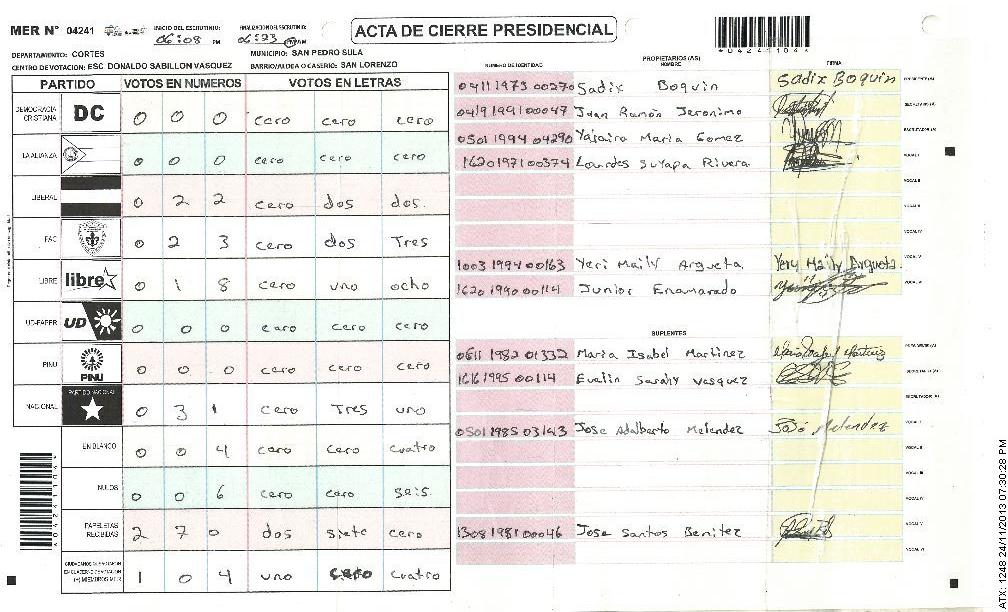 MER N° 04241
INICIO DEL ESCRUTINIO: 06:08 PM
FINALIZACION DEL ESCRUTINIO: 06:23 AM
ACTA DE CIERRE PRESIDENCIAL
*04241104*
DEPARTAMENTO: CORTES
MUNICIPIO: SAN PEDRO SULA
CENTRO DE VOTACION: ESC DONALDO SABILLON VASQUEZ
BARRIO/ALDEA O CASERIO: SAN LORENZO
PARTIDO VOTOS EN NUMEROS VOTOS EN LETRAS
DEMOCRACIA CRISTIANA DC 0 0 0 cero cero cero
LA ALIANZA 0 0 0 cero cero cero
LIBERAL 0 2 2 cero dos dos.
FAC 0 2 3 cero dos Tres
LIBRE libre 0 1 8 cero uno ocho
UD-FAPER UD 0 0 0 cero cero cero
PINU PINU 0 0 0 cero cero cero
NACIONAL PARTIDO NACIONAL 0 3 1 cero Tres uno
EN BLANCO 0 0 4 cero cero cuatro
NULOS 0 0 6 cero cero seis.
PAPELETAS RECIBIDAS 2 7 0 dos siete cero
(+) MIEMBROS MER 1 0 4 uno cero cuatro
PROPIETARIOS (AS)
NUMERO DE IDENTIDAD NOMBRE FIRMA
0411 1973 00270 Sadix Boquin Sadix Boquin PRESIDENTE (A)
0419 1991 00047 Juan Ramón Jeronimo SECRETARIO (A)
0501 1994 04290 Yajaira Maria Gomez ESCRUTADOR (A)
1620 1971 00374 Lourdes Suyapa Rivera VOCAL I
VOCAL II
VOCAL III
VOCAL IV
1003 1994 00163 Yeri Maily Argueta. Yery Maily Argueta. VOCAL V
1620 1990 00114 Junior Enamorado VOCAL VI
SUPLENTES
0611 1982 01332 Maria Isabel Martinez PRESIDENTE (A)
1616 1995 00114 Evelin Sarahy Vasquez SECRETARIO (A)
ESCRUTADOR (A)
0501 1985 03143 Jose Adalberto Melendez José Melendez VOCAL I
VOCAL II
VOCAL III
VOCAL IV
1308 1981 00046 Jose Santos Benitez VOCAL V
VOCAL VI
*04241104*
ATX: 1248 24/11/2013 07:30:28 PM